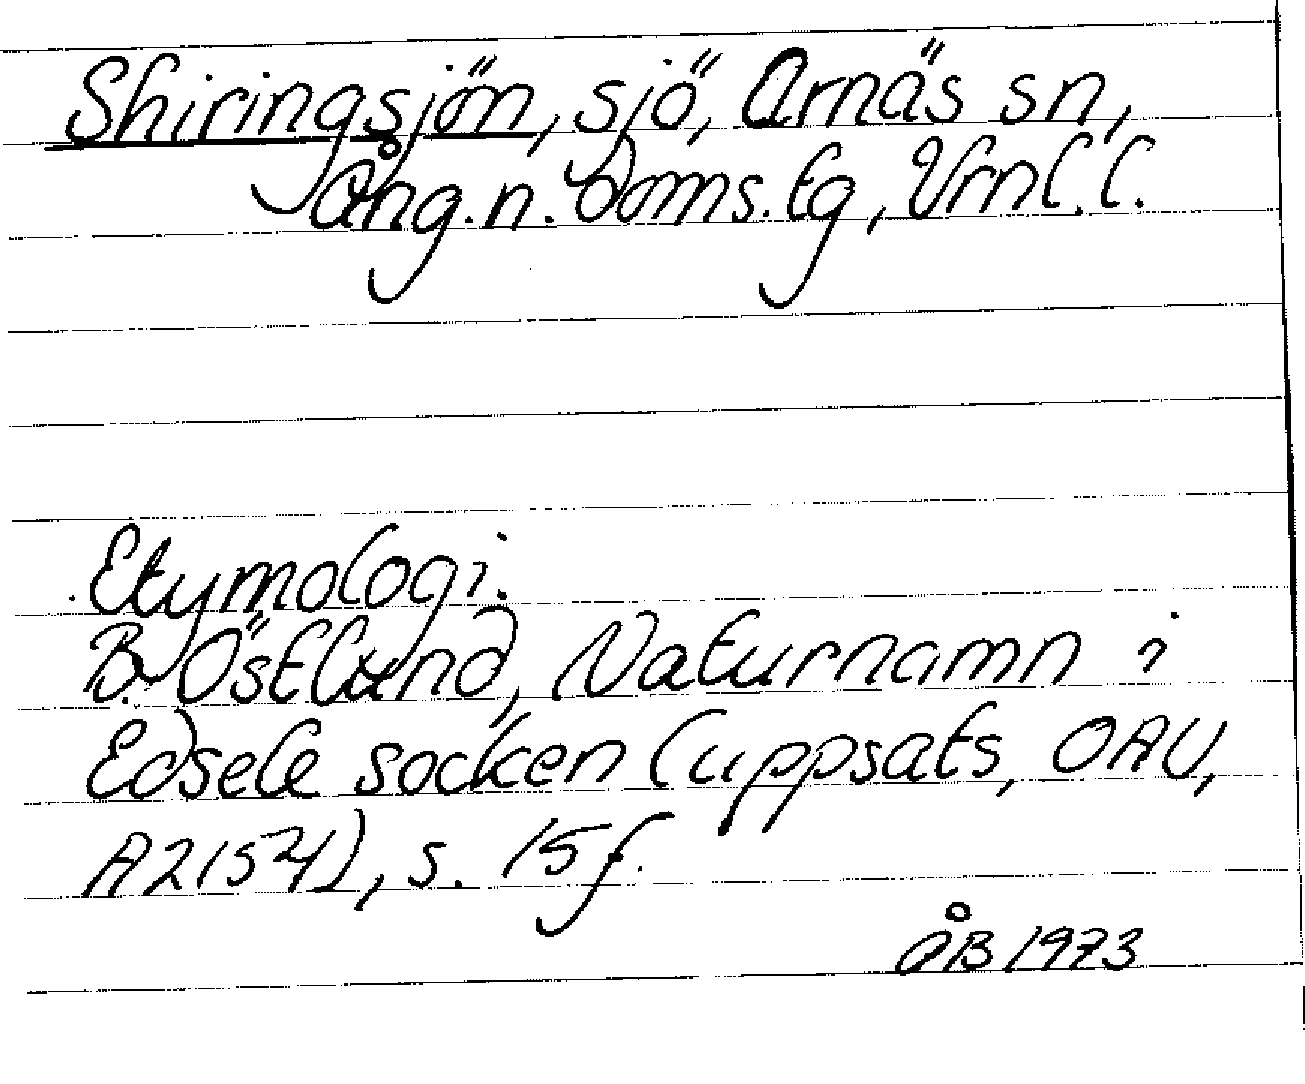 Skiringsjön, sjö, Arnäs sn,
Ång.n. Doms. tg, Vrnl. l.
Etymologi.
B. Östlund, Naturnamn i
Edsele socken (uppsats, OAU,
A2154), s. 15 f.
ÅB 1973